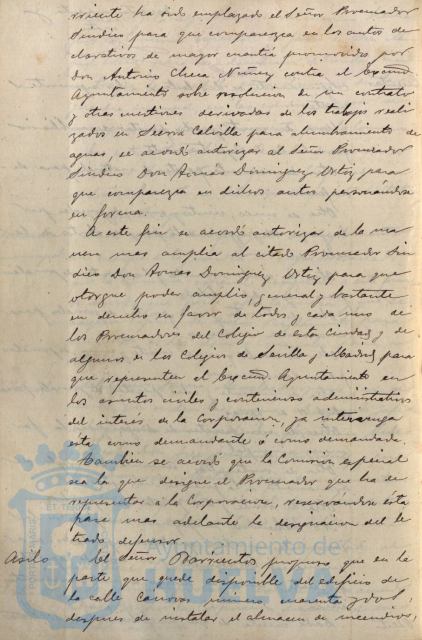 rriente ha sido emplazado el Señor Procurador
Síndico para que comparezca en los autos de
clarativos de mayor cuantía promovidos por
Don Antonio Checa Núñez contra el Excmo
Ayuntamiento sobre resolución de un contrato
y otras cuestiones derivadas de los trabajos reali
zados en Sierra Calvilla para alumbramiento de
aguas, se acordó autorizar al Señor Procurador
Síndico Don Tomás Domínguez Ortiz para
que comparezca en dichos autos personándose
en forma.
A este fin se acordó autorizar de la ma
nera mas amplia al citado Procurador Sín
dico Don Tomás Domínguez Ortiz para que
otorgue poder amplio, general y bastante
en derecho en favor de todos y cada uno de
los Procuradores del Colegio de esta Ciudad y de
algunos en los Colegios de Sevilla y Madrid para
que representen al Excmo. Ayuntamiento en
los asuntos civiles y contencioso administrativos
del interés de la Corporación, ya intervenga
esta como demandante ó como demandada.
Tambien se acordó que la Comisión especial
sea la que designe el Procurador que ha de
representar á la Corporación, reservándose esta
para mas adelante la designación del le
trado defensor.
Asilo El Señor Barrientos propuso que en la
parte que quede disponible del edificio de
la calle Canovas número cuarenta y dos,
despues de instalar el almacen de incendios,
Ayuntamiento de